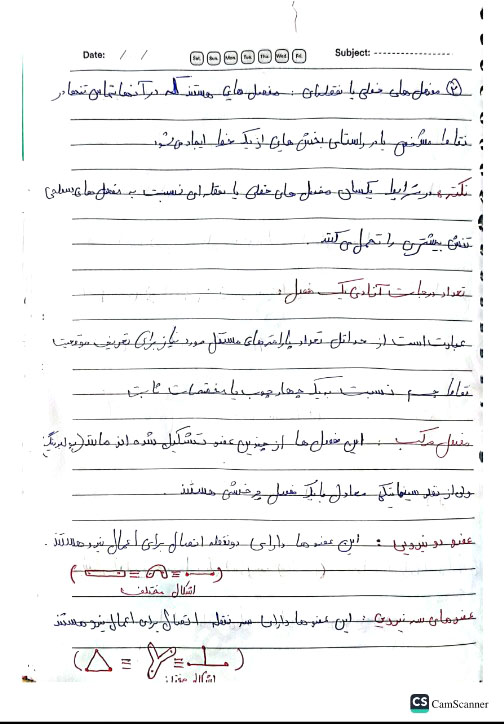 Date: / / Sat. Sun. Mon. Tue. Thu. Wed. Fri. Subject:
② مفصل های خطی یا نقطه‌ای : مفصل هایی هستند که در آنها تماس تنها در
نقاط مشخص یا در راستای بخش های از یک خط ایجاد می شود
نکته : در شرایط یکسان مفصل های خطی یا نقطه ای نسبت به مفصل های سطحی
تنش بیشتری را تحمل می کنند.
تعداد درجات آزادی یک مفصل :
عبارت است از حداقل تعداد پارامترهای مستقل مورد نیاز برای تعریف موقعیت
نقاط جسم نسبت به یک چهارچوب یا مختصات ثابت
مفصل مرکب : این مفصل ها از چندین عضو تشکیل شده اند مانند
ولی از نظر سینماتیکی معادل با یک مفصل چرخشی هستند.
عضو دو نیرویی : این عضو ها دارای دو نقطه اتصال برای اعمال نیرو هستند.
( ≡ ≡ )
اشکال مختلف
عضوهای سه نیروی : این عضو ها دارای سه نقطه اتصال برای اعمال نیرو هستند
( ≡ ≡ )
اشکال
CS CamScanner